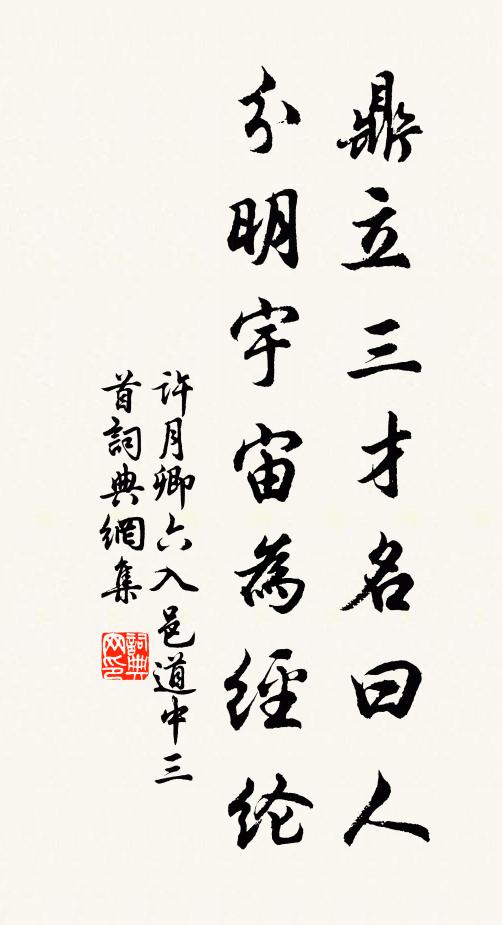 鼎立三才名曰人
分明宇宙為經纶
許月卿六入邑道中三
首詞典網集
詞典网印